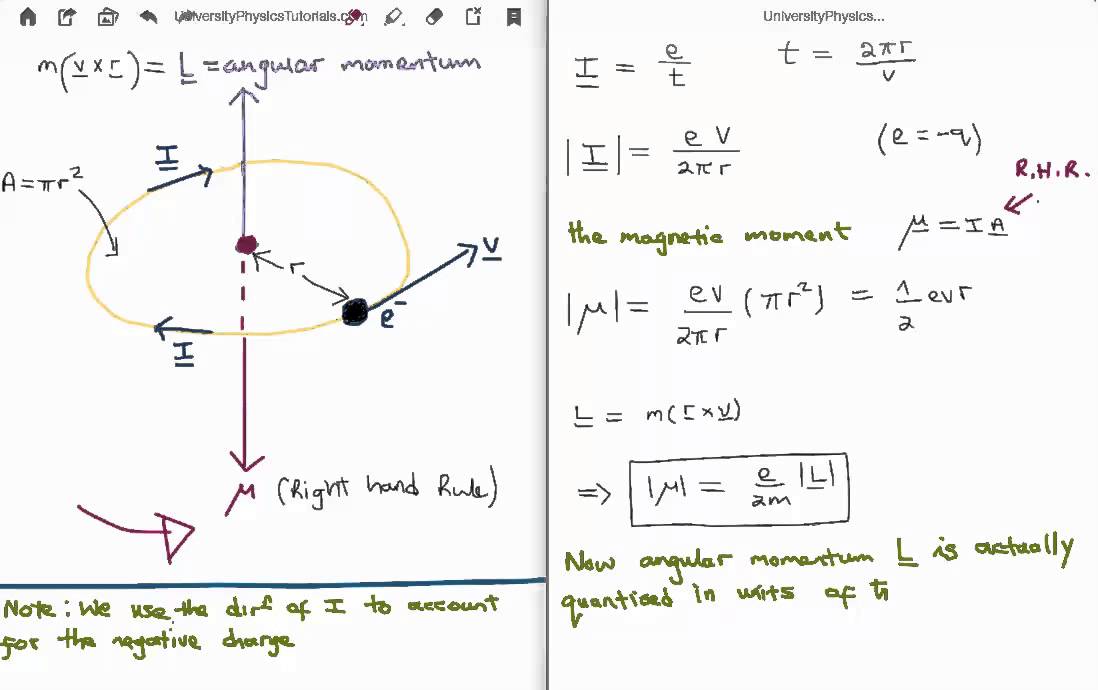 UniversityPhysicsTutorials.com
m(v × r) = L = angular momentum
I
A = πr²
v
r
e⁻
I
μ (Right hand Rule)
Note: We use the dirⁿ of I to account
for the negative charge
UniversityPhysics...
I = e/t t = 2πr/v
|I| = eV/2πr (e = -q)
R.H.R.
the magnetic moment μ = I A
|μ| = ev/2πr (πr²) = 1/2 evr
L = m(r × v)
=> |μ| = e/2m |L|
Now angular momentum L is actually
quantised in units of ħ